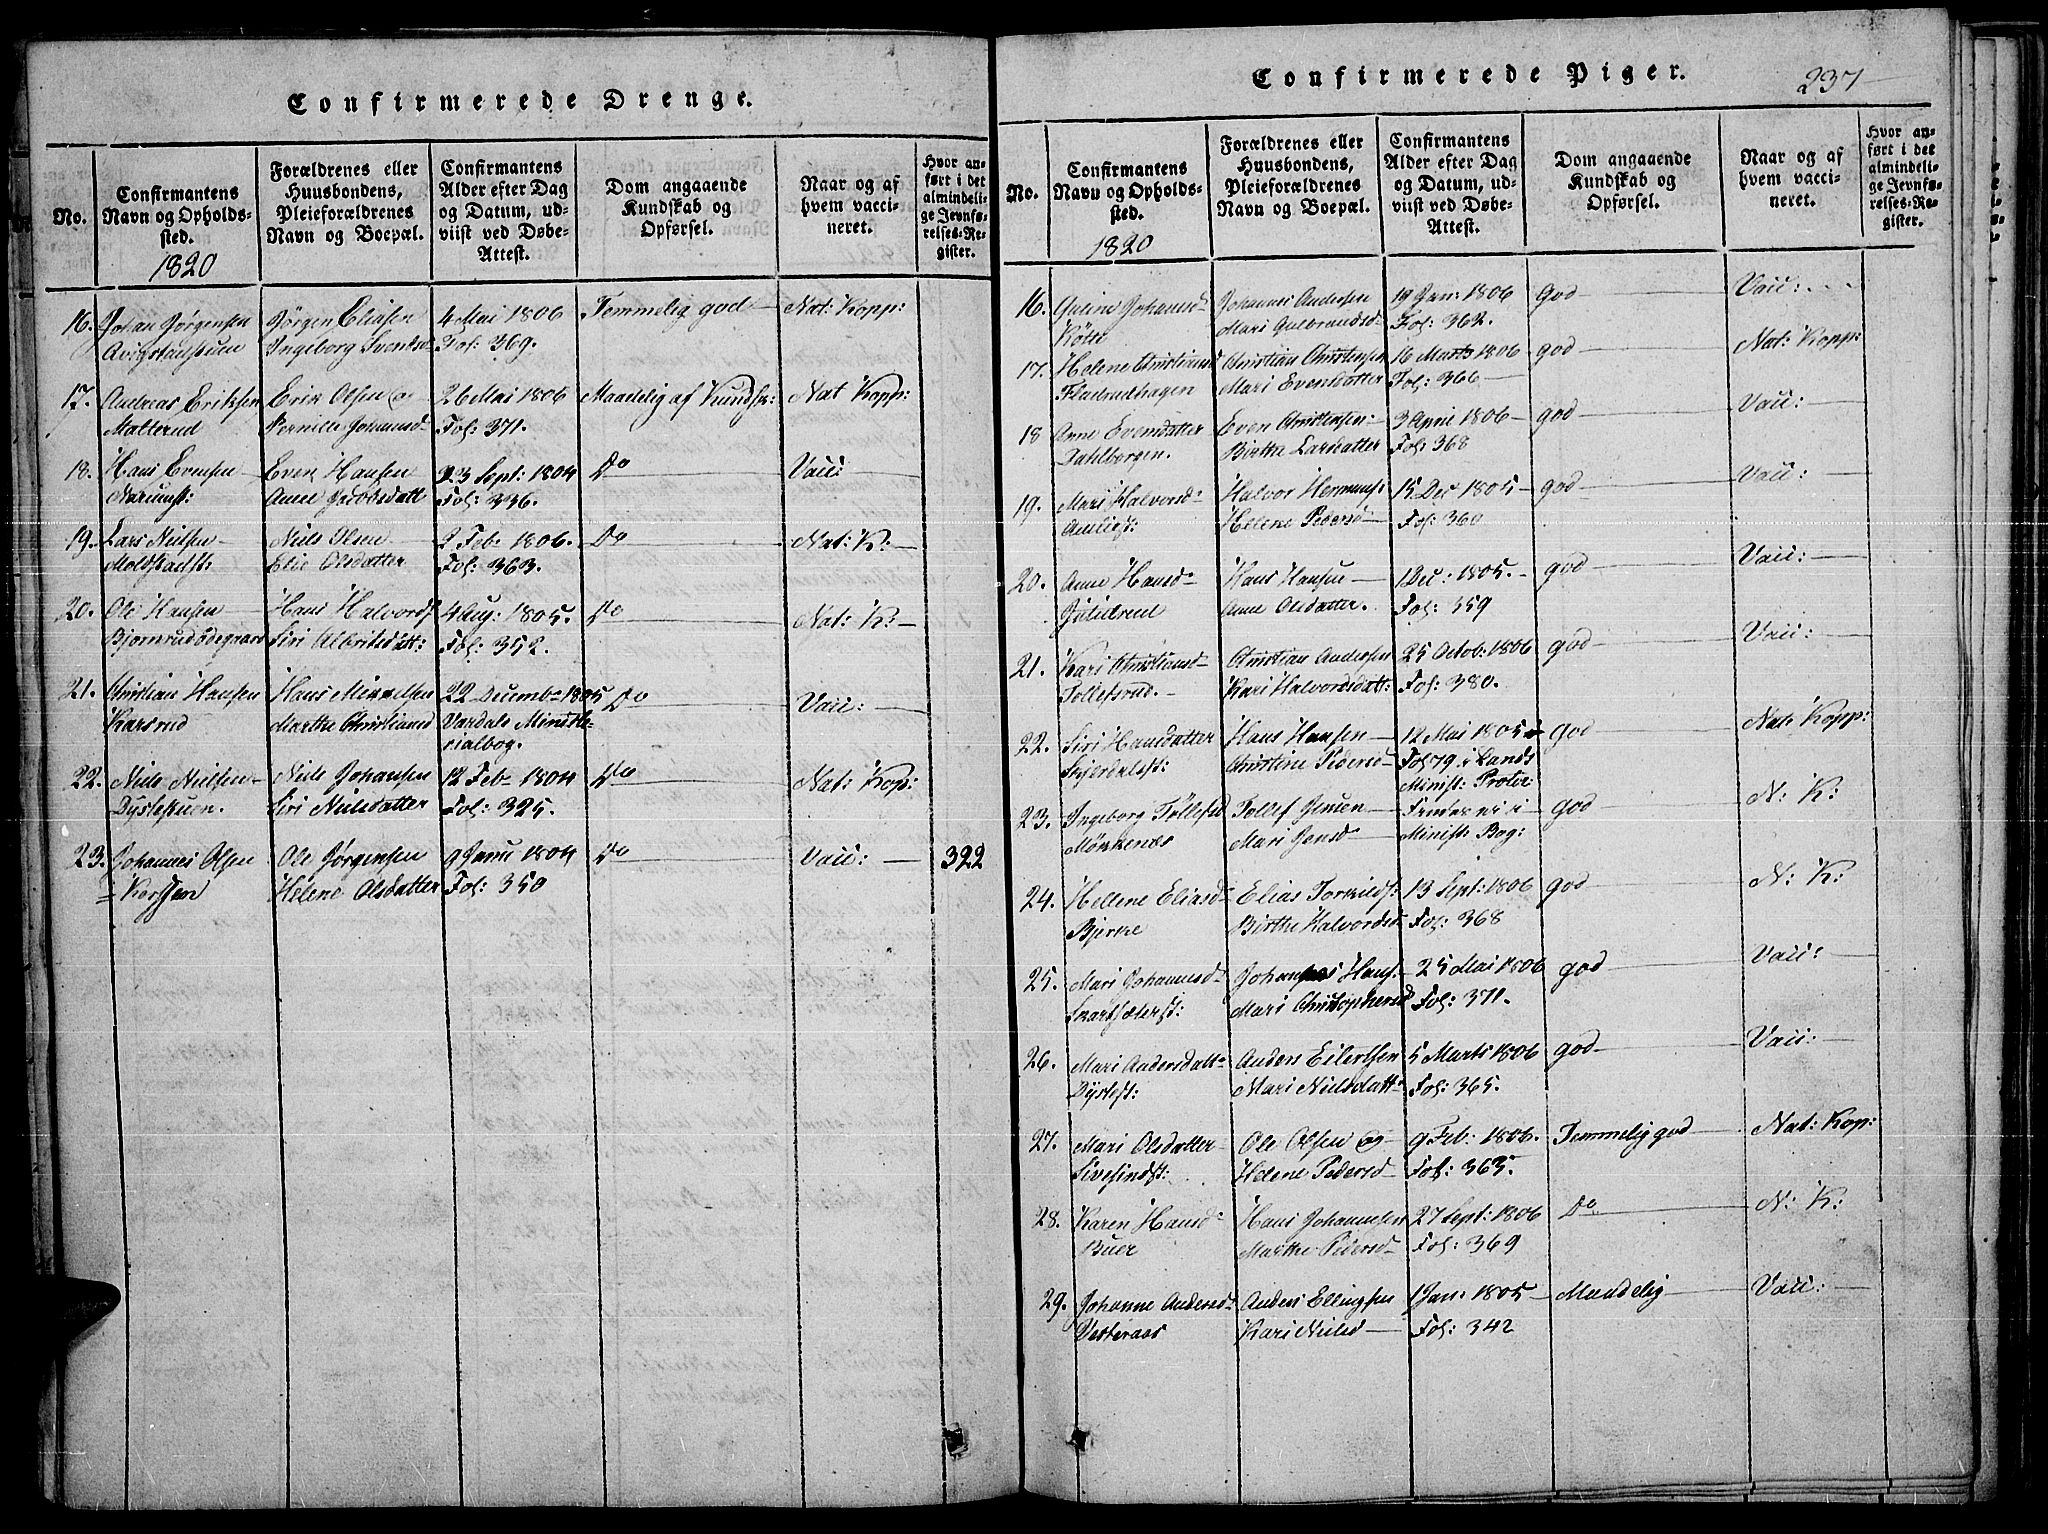 Confirmerede Drenge.
No.
Confirmantens Navn og Opholds-sted.
1820
Forældrenes eller Huusbondens, Pleieforældrenes Navn og Boepæl.
Confirmantens Alder efter Dag og Datum, ud-viist ved Døbe-Attest.
Dom angaaende Kundskab og Opførsel.
Naar og af hvem vacci-neret.
Hvor an-ført i det almindeli-ge Jevnfø-relses-Re-gister.
16. Johan Jørgensen Jørgen Eliasen 4 Mai 1806 Temmelig god Nat: Kopp:
Ingeborg Svends- Fol: 369.
17. Andreas Eriksen Erik Olsen og 26 Mai 1806 Maadelig af Kundsk: Nat Kopp:
Malterud Fol: 371.
18. Hans Evensen Even Hansen 23 Sept: 1804 Do Vacc:
Anne Fol: 336.
19. Lars Nielsen Niels Olsen 2 Feb: 1806. Do Nat: K:
Elie Olsdatter Fol: 363.
20. Ole Hansen Hans Halvords: 4 Aug: 1805. Do Nat: K:
Bjørnrudødegaard Siri Albritsdatt: Fol: 352.
21. Christian Hansen Hans Mikkelsen 22 Decemb- 1805 Do Vacc:
Karsrud Marthe Christiansd Vardals Ministe-
rialbog.
22. Niels Nielsen Niels Johansen 12 Feb- 1804 Do Nat: Kop:
Siri Nielsdatter Fol: 325.
23. Johannes Olsen Ole Jørgensen 9 Janu 1804 Do Vacc: 322
Helene Olsdatter Fol: 350
Confirmerede Piger.
237
No.
Confirmantens Navn og Opholds-sted.
1820
Forældrenes eller Huusbondens, Pleieforældrenes Navn og Boepæl.
Confirmantens Alder efter Dag og Datum, ud-viist ved Døbe-Attest.
Dom angaaende Kundskab og Opførsel.
Naar og af hvem vacci-neret.
Hvor an-ført i det almindeli-ge Jevnfø-relses-Re-gister.
16. Johannes Andersen 19 Jan: 1806 god Vacc:
Mari Gulbrandsd- Fol: 362.
17. Helene Christiansd Christian Christensen 16 Marts 1806 god Nat: Kopp:
Mari Evensdatter Fol: 366
18 Anne Evensdatter Even Christensen 3 April 1806 god Vacc:
Dahlborgen. Birthe Larsdatter Fol: 368
19. Mari Halvorsd- Halvor Hermans: 15 Dec 1805 god Vacc:
Helene Peders- Fol: 360
20. Anne Hansd- Hans Hansen 1 Dec: 1805. god Vacc:
Anne Olsdatter. Fol: 359
21. Kari Christiansd- Christian Andersen 25 Octob: 1806 god Vacc:
Tollefsrud. Kari Halvordsdatt: Fol: 380.
22. Siri Hansdatter Hans Hansen 12 Mai 1805 god Nat: Kopp:
Skjerdalst: Christine Pedersd Fol 79 i Lands
Minist: Proto:
23. Ingeborg Tollefsd Tollef Jensen Findes ei i god N: K:
Mønnenes Mari Jensd- Minist: Bog:
24. Hellene Eliasd- Elias Torkilds: 13 Sept: 1806 god N: K:
Bjerke Birthe Halvordsd- Fol: 368
25. Mari Johannesd- Johannes Hans: 25 Mai 1806 god Vacc:
Mari Christophersd Fol: 371.
26. Mari Andersdatt- Anders Eilertsen 5 Marts 1806 god Vacc:
Dystest: Mari Nielsdatt- Fol: 365.
27. Mari Olsdatter Ole Olsen og 9 Feb: 1806. Temmelig god Nat: Kop:
Sivesindst: Helene Pedersd- Fol: 363.
28. Karen Hansd- Hans Johannesen 27 Sept: 1806 Do N: K:
Buer Marthe Pedersd- Fol: 369
29. Johanne Andersd- Anders Ellingsen 1 Jan: 1805 Maadelig Vacc:
Vesteraas Kari Nielsd Fol: 342